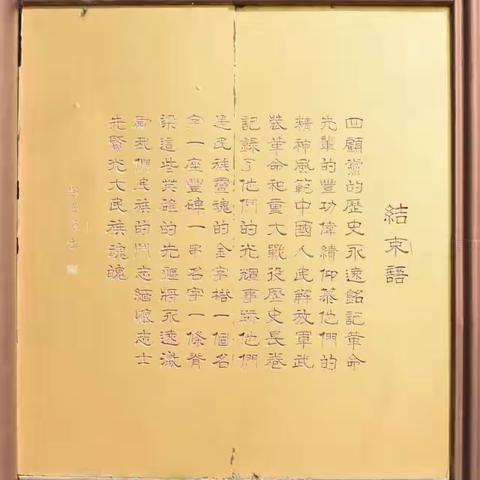 結束語
回顧黨的歷史永遠銘記革命
先輩的豐功偉績仰慕他們的
精神風範中國人民解放軍武
裝革命和重大戰役歷史長卷
記錄了他們的光輝事跡他們
是民族靈魂的金字塔一個名
字一座豐碑一串名字一條脊
梁這些英雄的先軀將永遠激
勵我們民族的鬥志緬懷志士
先賢光大民族魂魄